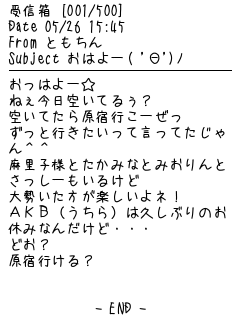 受信箱 [001/500]
Date 05/26 15:45
From ともちん
Subject おはよー( 'Θ')ﾉ
おっはよー☆
ねぇ今日空いてるぅ？
空いてたら原宿行こーぜっ
ずっと行きたいって言ってたじゃ
ん＾＾
麻里子様とたかみなとみおりんと
さっしーもいるけど
大勢いた方が楽しいよネ！
ＡＫＢ（うちら）は久しぶりのお
休みなんだけど・・・
どお？
原宿行ける？
- END -